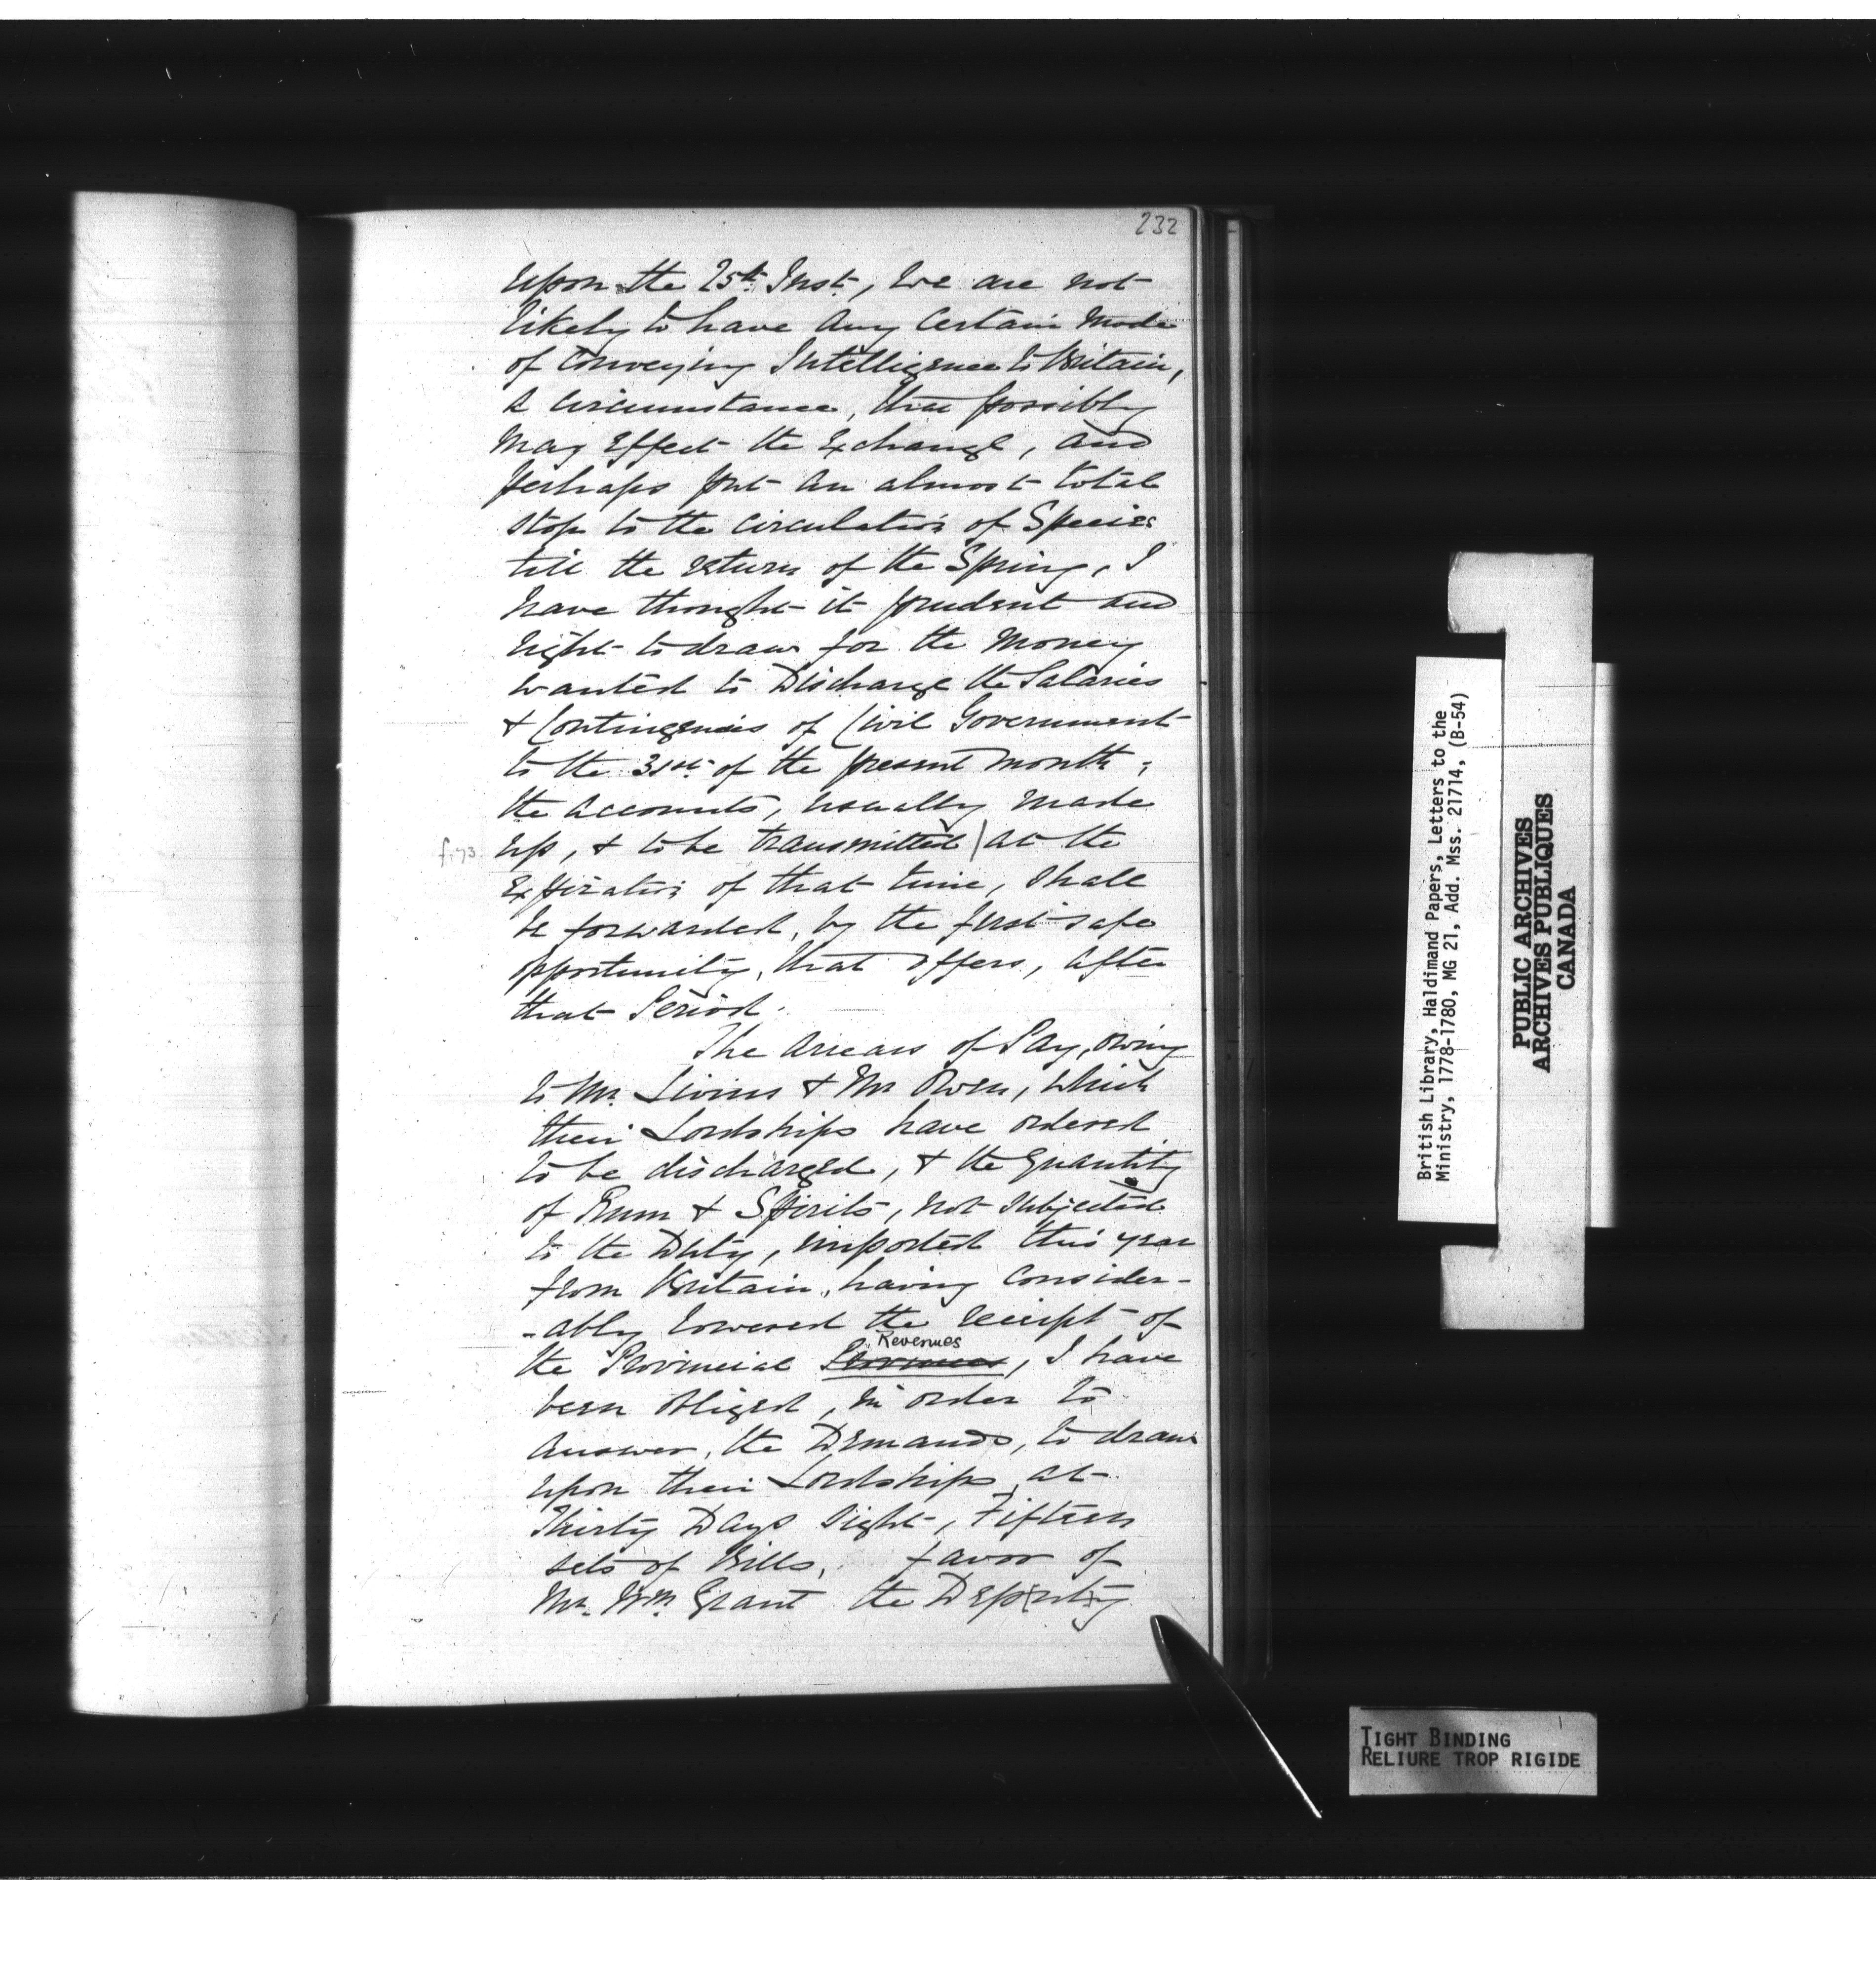 232
Upon the 25th Inst, We are not
likely to have Any Certain Mode
of Conveying Intelligence to Britain,
a Circumstance, that possibly
May Effect the Exchange, and
perhaps put an almost total
stop to the Circulation of Species
till the return of the Spring, I
have thought it prudent and
right to draw for the Money
wanted to Discharge the Salaries
& Contingencies of Civil Government
to the 31st of the present month;
the Accounts, usually made
up, & to be transmitted | at the
f.73.
Expiration of that time, shall
be forwarded, by the first safe
opportunity, that offers, after
that Period.
The Arrears of Pay, owing
to Mr. Livius & Mr Owen, which
their Lordships have ordered
to be discharged, & the Quantity
of Rum & Spirits, not Subjected
to the Duty, imported this year
from Britain, having Consider-
-ably lowered the receipt of
Revenues
the Provincial Provinces, I have
been obliged, in order to
Answer, the Demands, to draw
upon their Lordships at
Thirty Days Sight, Fifteen
sets of Bills, favor of
Mr. Wm. Grant the Deputy
British Library, Haldimand Papers, Letters to the
Ministry, 1778-1780, MG 21, Add. Mss. 21714, (B-54)
PUBLIC ARCHIVES
ARCHIVES PUBLIQUES
CANADA
TIGHT BINDING
RELIURE TROP RIGIDE